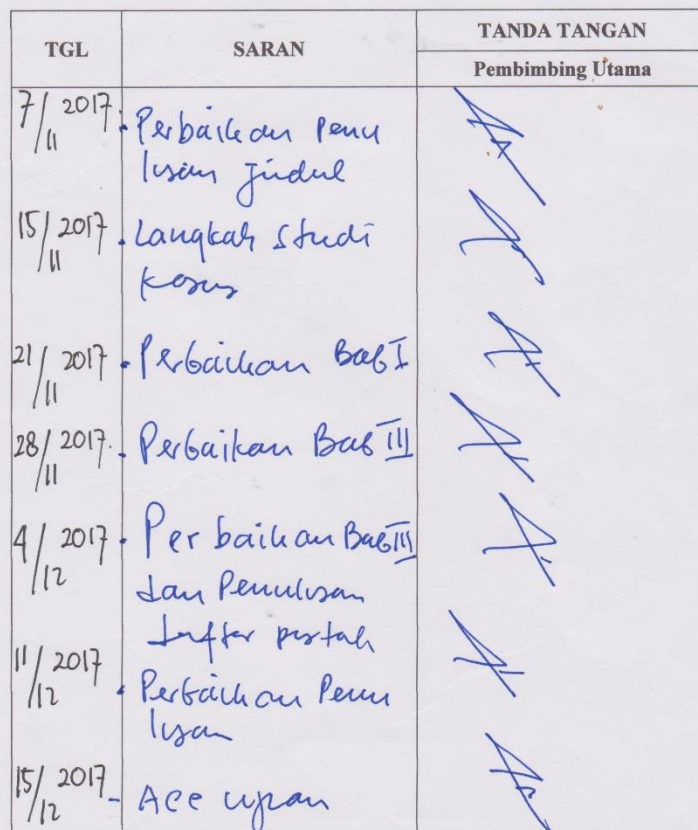 TGL SARAN TANDA TANGAN
Pembimbing Utama
7/11 2017 . Perbaikan Penu
lisan Judul
15/11 2017 . Langkah Studi
Kasus
21/11 2017 . Perbaikan Bab I
28/11 2017 . Perbaikan Bab III
4/12 2017 . Perbaikan Bab III
dan Penulisan
daftar pustak
11/12 2017 . Perbaikan Penu
lisan
15/12 2017 - Acc ujian